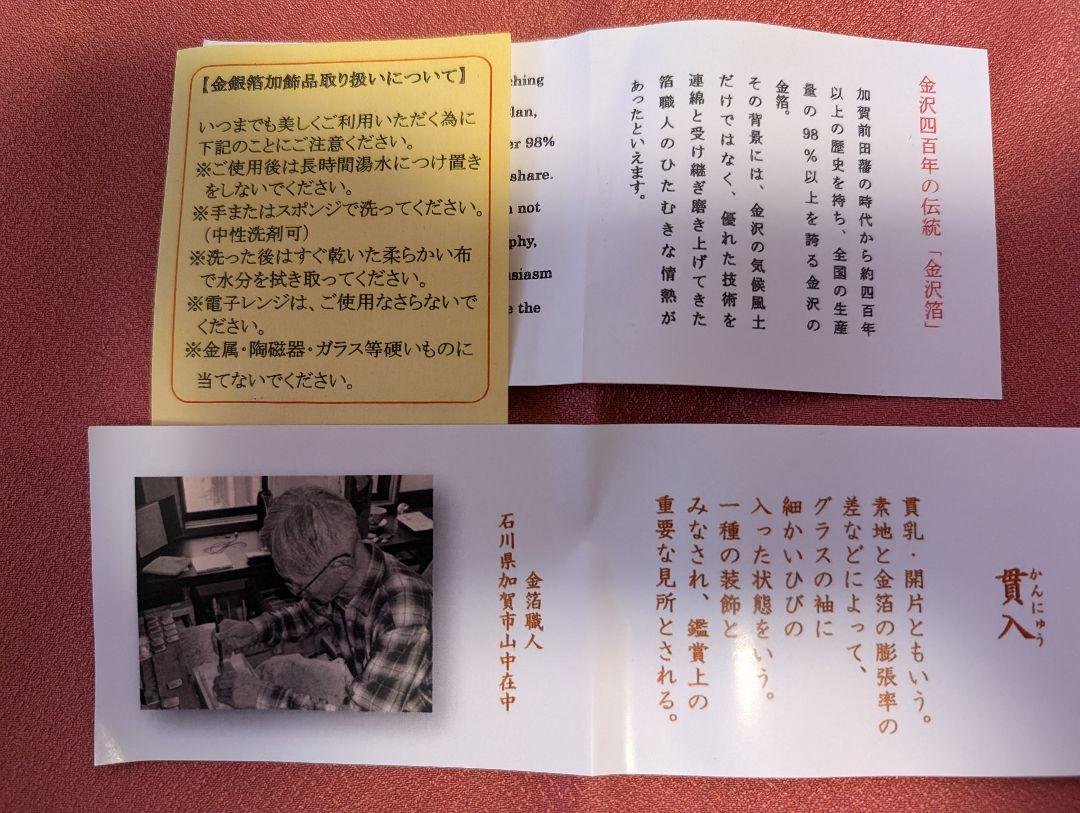 【金銀箔加飾品取り扱いについて】
いつまでも美しくご利用いただく為に
下記のことにご注意ください。
※ご使用後は長時間湯水につけ置き
をしないでください。
※手またはスポンジで洗ってください。
（中性洗剤可）
※洗った後はすぐ乾いた柔らかい布
で水分を拭き取ってください。
※電子レンジは、ご使用なさらないで
ください。
※金属・陶磁器・ガラス等硬いものに
当てないでください。
hing
lan,
r 98%
share.
not
phy,
usiasm
e the
金沢四百年の伝統「金沢箔」
加賀前田藩の時代から約四百年
以上の歴史を持ち、全国の生産
量の98％以上を誇る金沢の
金箔。
その背景には、金沢の気候風土
だけではなく、優れた技術を
連綿と受け継ぎ磨き上げてきた
箔職人のひたむきな情熱が
あったといえます。
貫入
かんにゅう
貫乳・開片ともいう。
素地と金箔の膨張率の
差などによって、
グラスの袖に
細かいひびの
入った状態をいう。
一種の装飾と
みなされ、鑑賞上の
重要な見所とされる。
金箔職人
石川県加賀市山中在中